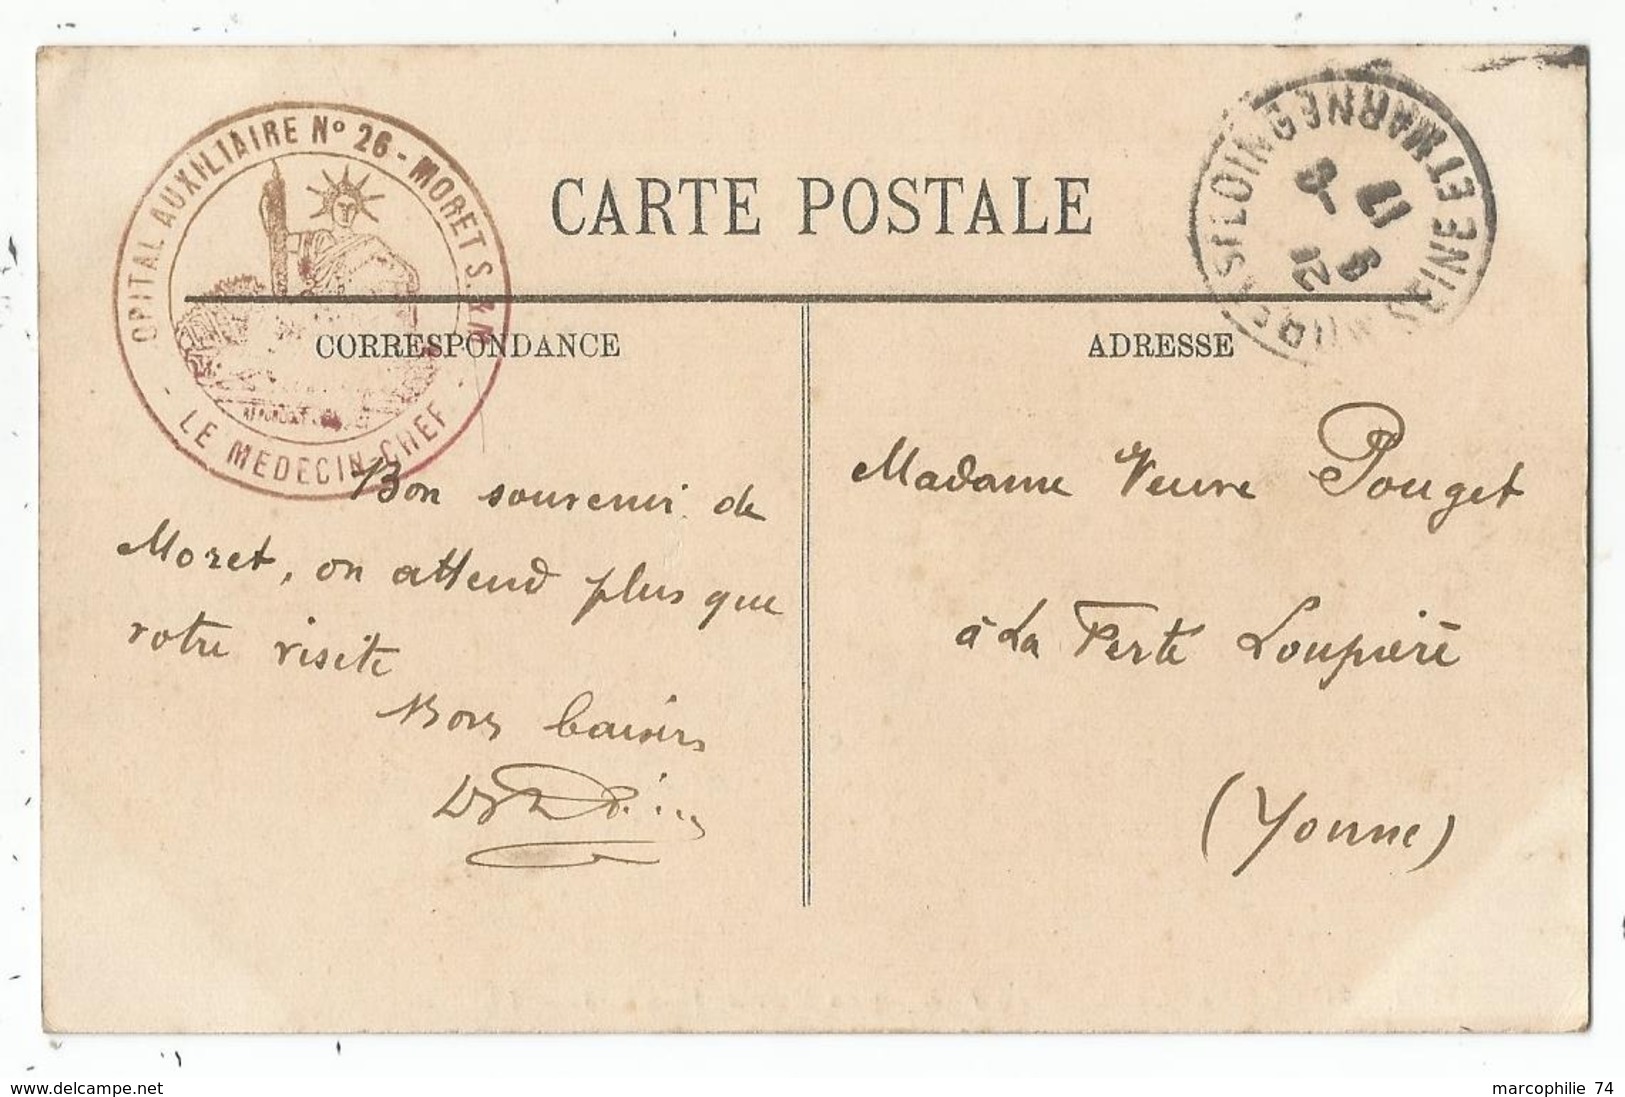 CARTE POSTALE
OPITAL AUXILIAIRE No 26 - MORET S. LNG
- LE MEDECIN-CHEF -
SEINE ET MARNE
12 9 -5 17
CORRESPONDANCE
Bon souvenir de
Moret, on attend plus que
votre visite
Bons baisers
ADRESSE
Madame Veuve Pouget
à La Ferté Loupière
(Yonne)
www.delcampe.net
marcophilie 74